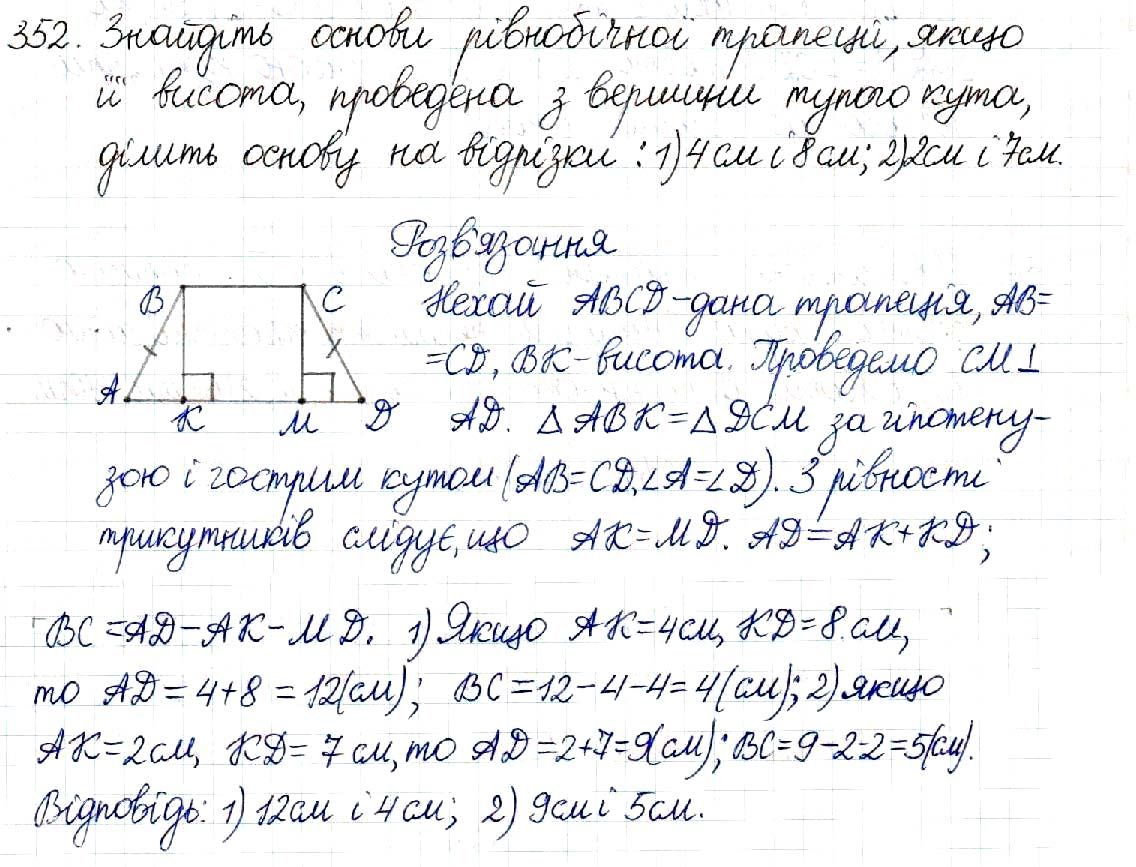 352. Знайдіть основи рівнобічної трапеції, якщо
її висота, проведена з вершини тупого кута,
ділить основу на відрізки: 1) 4 см і 8 см; 2) 2 см і 7 см.
Розв'язання
B C
A K M D
Нехай ABCD - дана трапеція, AB=
=CD, BK - висота. Проведемо CM⊥
AD. △ABK=△DCM за гіпотену-
зою і гострим кутом (AB=CD, ∠A=∠D). З рівності
трикутників слідує, що AK=MD. AD=AK+KD;
BC=AD-AK-MD. 1) Якщо AK=4см, KD=8см,
то AD=4+8=12(см); BC=12-4-4=4(см); 2) якщо
AK=2см, KD=7см, то AD=2+7=9(см); BC=9-2-2=5(см).
Відповідь: 1) 12см і 4см; 2) 9см і 5см.